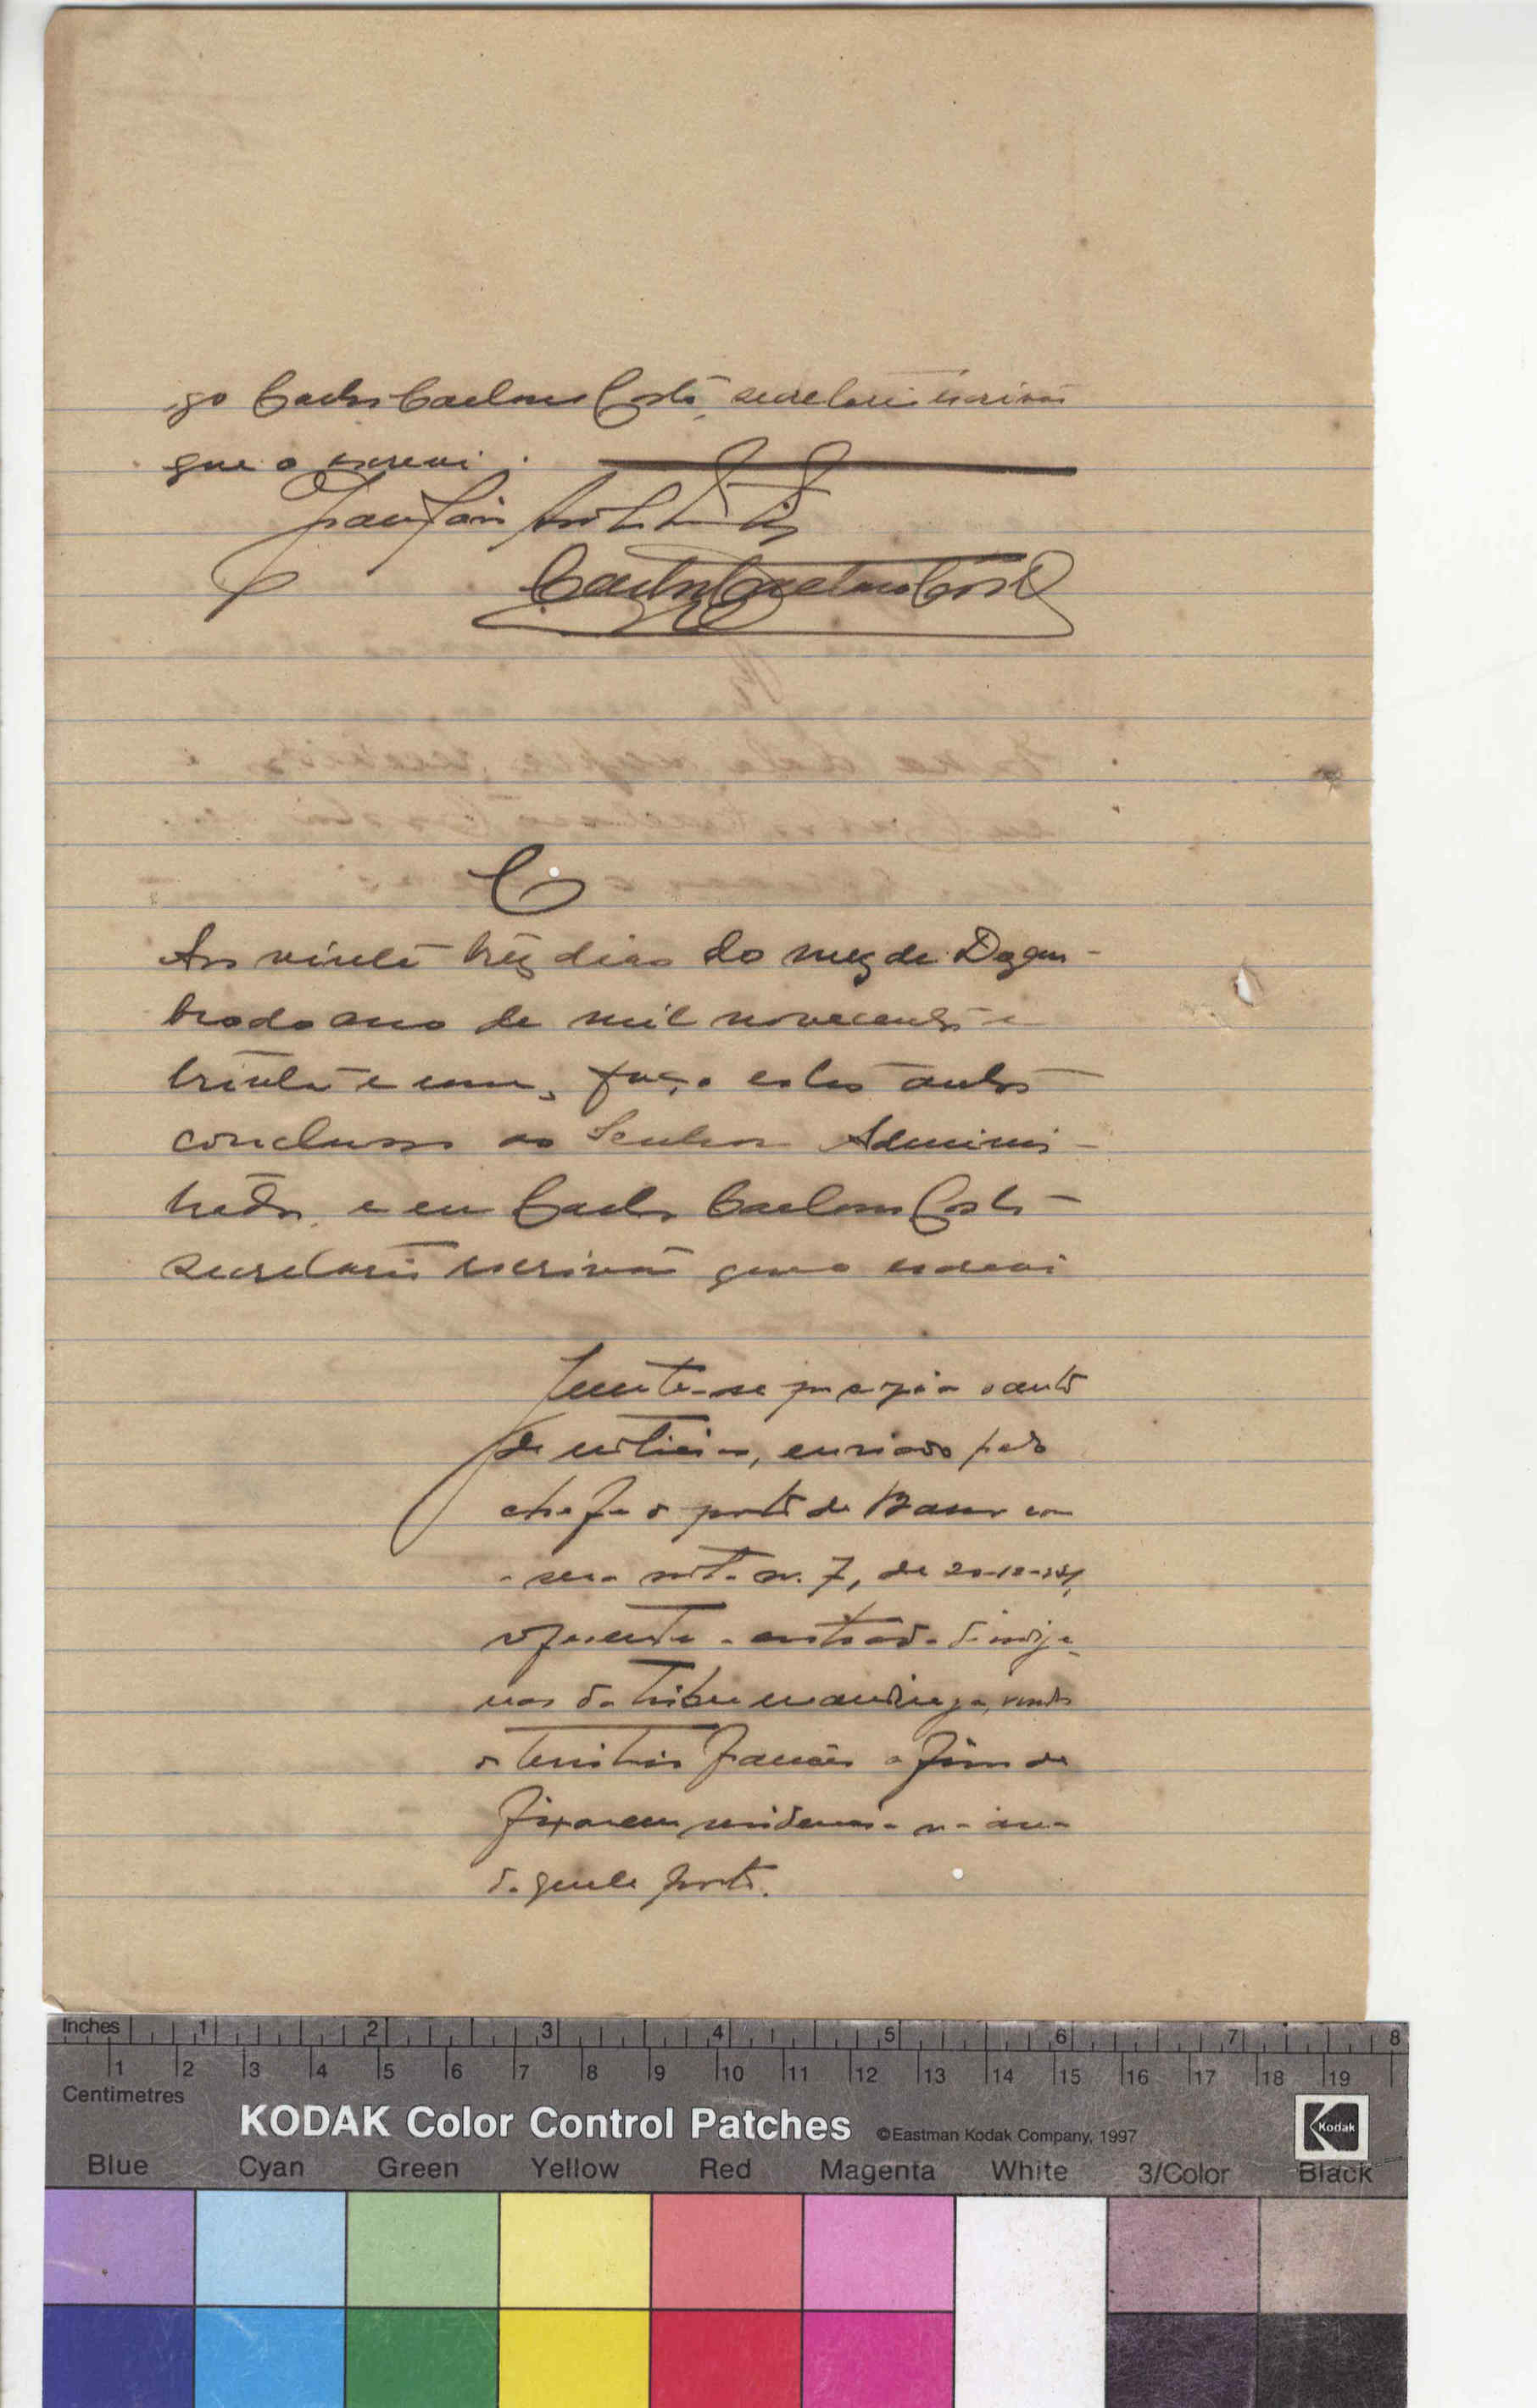 go Carlos Caetano Costa, secretario escrivão
que o escrevi.
Carlos Caetano Costa
C
Aos vinte três dias do mez de Dezem-
bro do ano de mil novecentos e
trinta e um, faço estes autos
conclusos ao Senhor Adminis-
trador, e eu Carlos Caetano Costa
secretario escrivão que o escrevi
Junte-se por copia o auto
de noticia, enviado pelo
chefe do posto de
a sua nota n. 7, de 20-12-931,
referente a entrada de indige-
nas da tribu mandinga, vindos
do territorio francês a fim de
fixarem residencia na area
daquele posto.
Inches 1 2 3 4 5 6 7 8
1 2 3 4 5 6 7 8 9 10 11 12 13 14 15 16 17 18 19
Centimetres
KODAK Color Control Patches ©Eastman Kodak Company, 1997
Kodak
Blue Cyan Green Yellow Red Magenta White 3/Color Black